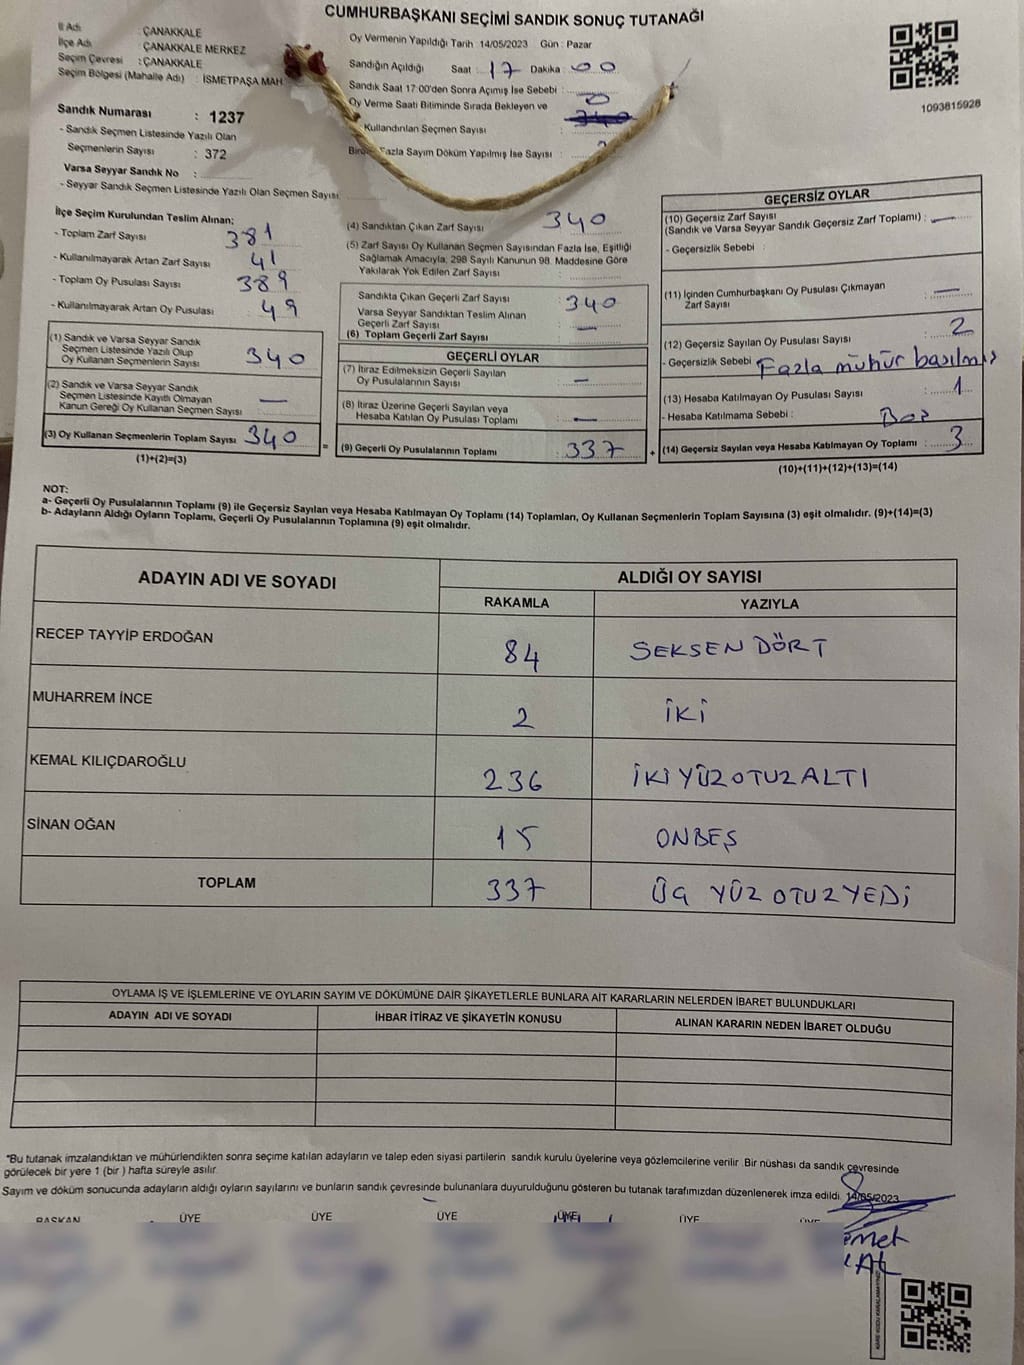 CUMHURBAŞKANI SEÇİMİ SANDIK SONUÇ TUTANAĞI
İl Adı : ÇANAKKALE
İlçe Adı : ÇANAKKALE MERKEZ
Seçim Çevresi : ÇANAKKALE
Seçim Bölgesi (Mahalle Adı) : İSMETPAŞA MAH
Sandık Numarası : 1237
- Sandık Seçmen Listesinde Yazılı Olan
Seçmenlerin Sayısı : 372
Varsa Seyyar Sandık No :
- Seyyar Sandık Seçmen Listesinde Yazılı Olan Seçmen Sayısı
Oy Vermenin Yapıldığı Tarih 14/05/2023 Gün : Pazar
Sandığın Açıldığı Saat : 17 Dakika : 00
Sandık Saat 17:00'den Sonra Açımış İse Sebebi :
Oy Verme Saati Bitiminde Sırada Bekleyen ve 0
Kullandırılan Seçmen Sayısı : 340
Fazla Sayım Döküm Yapılmış İse Sayısı :
1093815928
İlçe Seçim Kurulundan Teslim Alınan;
- Toplam Zarf Sayısı 381
- Kullanılmayarak Artan Zarf Sayısı 41
- Toplam Oy Pusulası Sayısı 389
- Kullanılmayarak Artan Oy Pusulası 49
(1) Sandık ve Varsa Seyyar Sandık
Seçmen Listesinde Yazılı Olup
Oy Kullanan Seçmenlerin Sayısı 340
(2) Sandık ve Varsa Seyyar Sandık
Seçmen Listesinde Kayıtlı Olmayan
Kanun Gereği Oy Kullanan Seçmen Sayısı : —
(3) Oy Kullanan Seçmenlerin Toplam Sayısı : 340 =
(1)+(2)=(3)
(4) Sandıktan Çıkan Zarf Sayısı 340
(5) Zarf Sayısı Oy Kullanan Seçmen Sayısından Fazla İse, Eşitliği
Sağlamak Amacıyla, 298 Sayılı Kanunun 98. Maddesine Göre
Yakılarak Yok Edilen Zarf Sayısı :
Sandıkta Çıkan Geçerli Zarf Sayısı : 340
Varsa Seyyar Sandıktan Teslim Alınan
Geçerli Zarf Sayısı : —
(6) Toplam Geçerli Zarf Sayısı
GEÇERLİ OYLAR
(7) İtiraz Edilmeksizin Geçerli Sayılan
Oy Pusulalarının Sayısı : —
(8) İtiraz Üzerine Geçerli Sayılan veya
Hesaba Katılan Oy Pusulası Toplamı : —
(9) Geçerli Oy Pusulalarının Toplamı : 337 +
GEÇERSİZ OYLAR
(10) Geçersiz Zarf Sayısı
(Sandık ve Varsa Seyyar Sandık Geçersiz Zarf Toplamı) : —
- Geçersizlik Sebebi :
(11) İçinden Cumhurbaşkanı Oy Pusulası Çıkmayan
Zarf Sayısı : —
(12) Geçersiz Sayılan Oy Pusulası Sayısı : 2
- Geçersizlik Sebebi : Fazla mühür basılmış
(13) Hesaba Katılmayan Oy Pusulası Sayısı : 1
- Hesaba Katılmama Sebebi : Boş
(14) Geçersiz Sayılan veya Hesaba Katılmayan Oy Toplamı : 3
(10)+(11)+(12)+(13)=(14)
NOT:
a- Geçerli Oy Pusulalarının Toplamı (9) ile Geçersiz Sayılan veya Hesaba Katılmayan Oy Toplamı (14) Toplamları, Oy Kullanan Seçmenlerin Toplam Sayısına (3) eşit olmalıdır. (9)+(14)=(3)
b- Adayların Aldığı Oyların Toplamı, Geçerli Oy Pusulalarının Toplamına (9) eşit olmalıdır.
ADAYIN ADI VE SOYADI ALDIĞI OY SAYISI
RAKAMLA YAZIYLA
RECEP TAYYİP ERDOĞAN 84 SEKSEN DÖRT
MUHARREM İNCE 2 İKİ
KEMAL KILIÇDAROĞLU 236 İKİ YÜZ OTUZ ALTI
SİNAN OĞAN 15 ONBEŞ
TOPLAM 337 ÜÇ YÜZ OTUZ YEDİ
OYLAMA İŞ VE İŞLEMLERİNE VE OYLARIN SAYIM VE DÖKÜMÜNE DAİR ŞİKAYETLERLE BUNLARA AİT KARARLARIN NELERDEN İBARET BULUNDUKLARI
ADAYIN ADI VE SOYADI İHBAR İTİRAZ VE ŞİKAYETİN KONUSU ALINAN KARARIN NEDEN İBARET OLDUĞU
"Bu tutanak imzalandıktan ve mühürlendikten sonra seçime katılan adayların ve talep eden siyasi partilerin sandık kurulu üyelerine veya gözlemcilerine verilir. Bir nüshası da sandık çevresinde
görülecek bir yere 1 (bir ) hafta süreyle asılır.
Sayım ve döküm sonucunda adayların aldığı oyların sayılarını ve bunların sandık çevresinde bulunanlara duyurulduğunu gösteren bu tutanak tarafımızdan düzenlenerek imza edildi. 14/05/2023
BAŞKAN ÜYE ÜYE ÜYE ÜYE ÜYE ÜYE